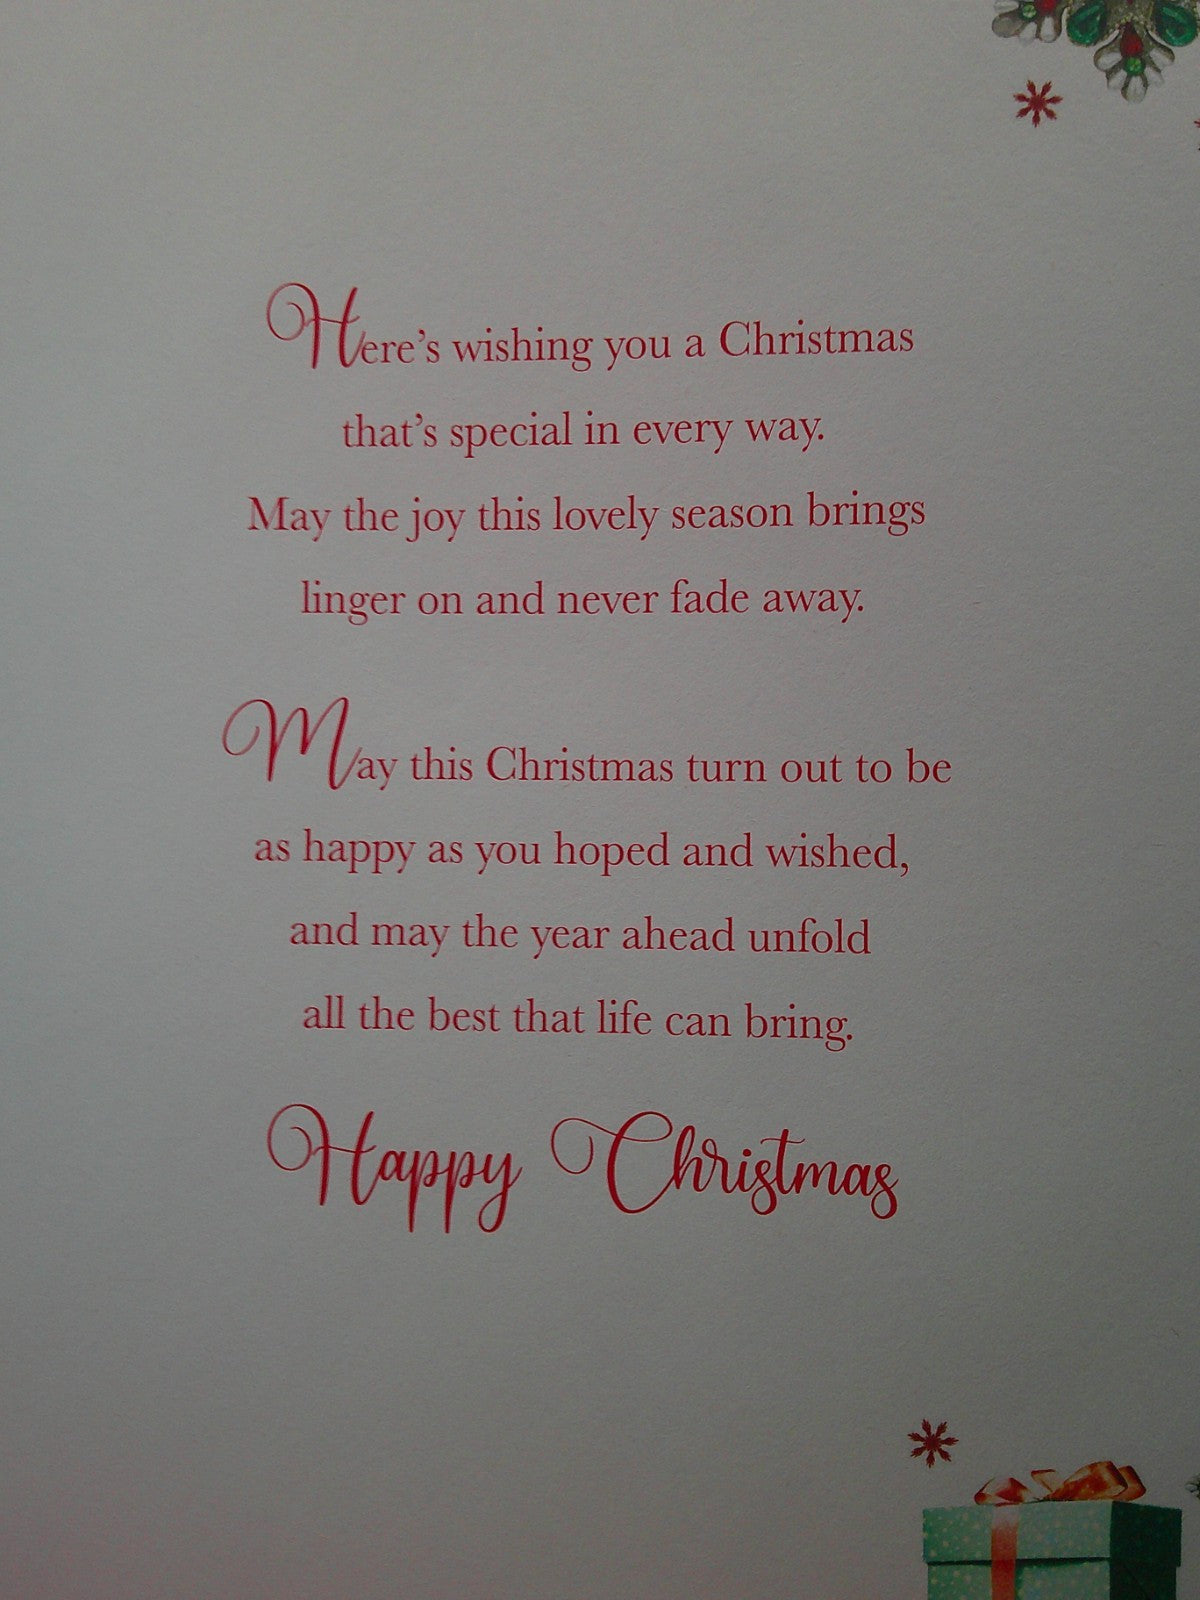 Here’s wishing you a Christmas
that’s special in every way.
May the joy this lovely season brings
linger on and never fade away.
May this Christmas turn out to be
as happy as you hoped and wished,
and may the year ahead unfold
all the best that life can bring.
Happy Christmas